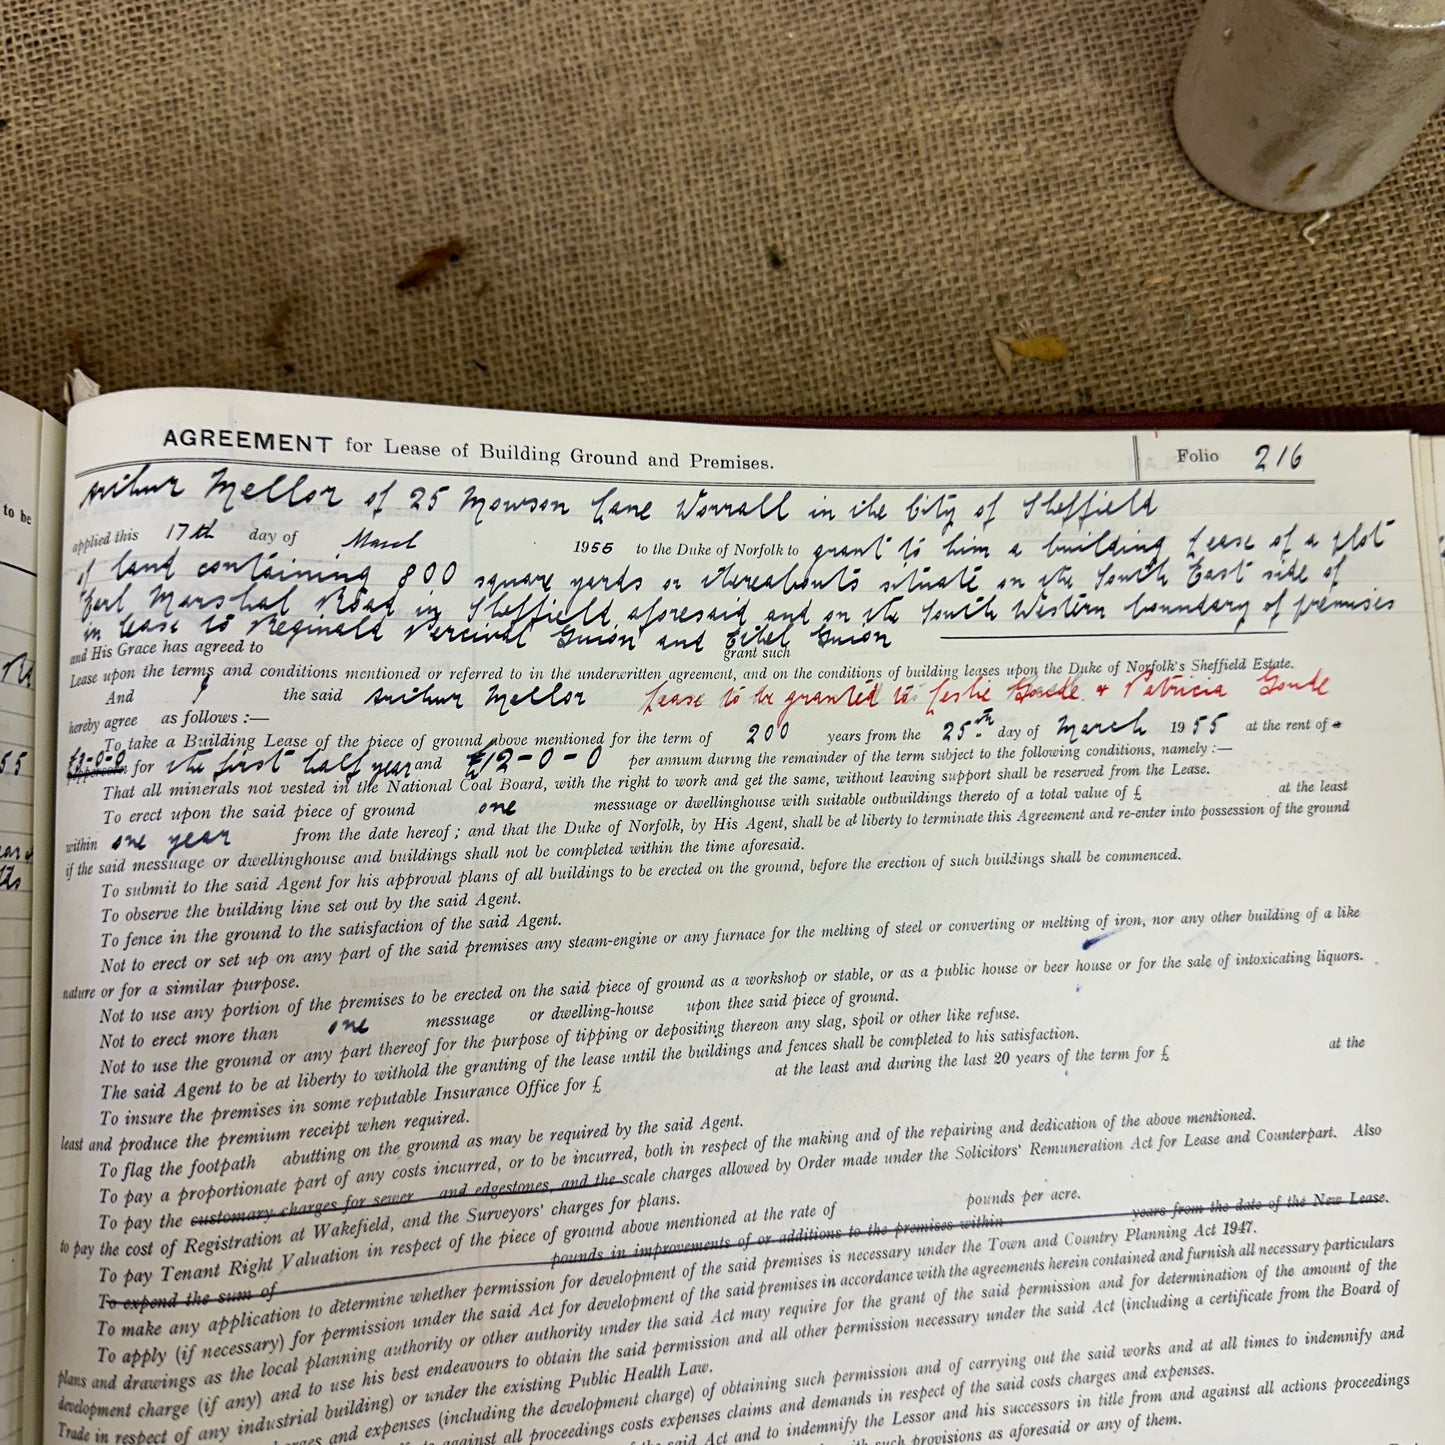 AGREEMENT for Lease of Building Ground and Premises.
Folio 216
Arthur Mellor of 25 Mowson Lane Worrall in the City of Sheffield
applied this 17th day of March 1955 to the Duke of Norfolk to grant to him a building Lease of a plot
of land containing 800 square yards or thereabouts situate on the South East side of
Earl Marshal Road in Sheffield aforesaid and on the South Western boundary of premises
in lease to Reginald Percival Guion and Ethel Guion
and His Grace has agreed to grant such
Lease upon the terms and conditions mentioned or referred to in the underwritten agreement, and on the conditions of building leases upon the Duke of Norfolk's Sheffield Estate.
And I the said Arthur Mellor Lease to be granted to Leslie Goude & Patricia Goude
hereby agree as follows :—
To take a Building Lease of the piece of ground above mentioned for the term of 200 years from the 25th day of March 1955 at the rent of a
£1-0-0
peppercorn for the first half year and £12-0-0 per annum during the remainder of the term subject to the following conditions, namely :—
That all minerals not vested in the National Coal Board, with the right to work and get the same, without leaving support shall be reserved from the Lease.
To erect upon the said piece of ground one messuage or dwellinghouse with suitable outbuildings thereto of a total value of £ at the least
within one year from the date hereof ; and that the Duke of Norfolk, by His Agent, shall be at liberty to terminate this Agreement and re-enter into possession of the ground
if the said messuage or dwellinghouse and buildings shall not be completed within the time aforesaid.
To submit to the said Agent for his approval plans of all buildings to be erected on the ground, before the erection of such buildings shall be commenced.
To observe the building line set out by the said Agent.
To fence in the ground to the satisfaction of the said Agent.
Not to erect or set up on any part of the said premises any steam-engine or any furnace for the melting of steel or converting or melting of iron, nor any other building of a like
nature or for a similar purpose.
Not to use any portion of the premises to be erected on the said piece of ground as a workshop or stable, or as a public house or beer house or for the sale of intoxicating liquors.
Not to erect more than one messuage or dwelling-house upon thee said piece of ground.
Not to use the ground or any part thereof for the purpose of tipping or depositing thereon any slag, spoil or other like refuse.
The said Agent to be at liberty to withold the granting of the lease until the buildings and fences shall be completed to his satisfaction.
To insure the premises in some reputable Insurance Office for £ at the least and during the last 20 years of the term for £ at the
least and produce the premium receipt when required.
To flag the footpath abutting on the ground as may be required by the said Agent.
To pay a proportionate part of any costs incurred, or to be incurred, both in respect of the making and of the repairing and dedication of the above mentioned.
To pay the customary charges for sewer and edgestones, and the scale charges allowed by Order made under the Solicitors' Remuneration Act for Lease and Counterpart. Also
to pay the cost of Registration at Wakefield, and the Surveyors' charges for plans.
To pay Tenant Right Valuation in respect of the piece of ground above mentioned at the rate of pounds per acre.
To expend the sum of pounds in improvements of or additions to the premises within years from the date of the New Lease.
To make any application to determine whether permission for development of the said premises is necessary under the Town and Country Planning Act 1947.
To apply (if necessary) for permission under the said Act for development of the said premises in accordance with the agreements herein contained and furnish all necessary particulars
plans and drawings as the local planning authority or other authority under the said Act may require for the grant of the said permission and for determination of the amount of the
development charge (if any) and to use his best endeavours to obtain the said permission and all other permission necessary under the said Act (including a certificate from the Board of
Trade in respect of any industrial building) or under the existing Public Health Law.
and expenses (including the development charge) of obtaining such permission and of carrying out the said works and at all times to indemnify and
against all proceedings costs expenses claims and demands in respect of the said costs charges and expenses.
the said Act and to indemnify the Lessor and his successors in title from and against all actions proceedings
such provisions as aforesaid or any of them.
to be
55